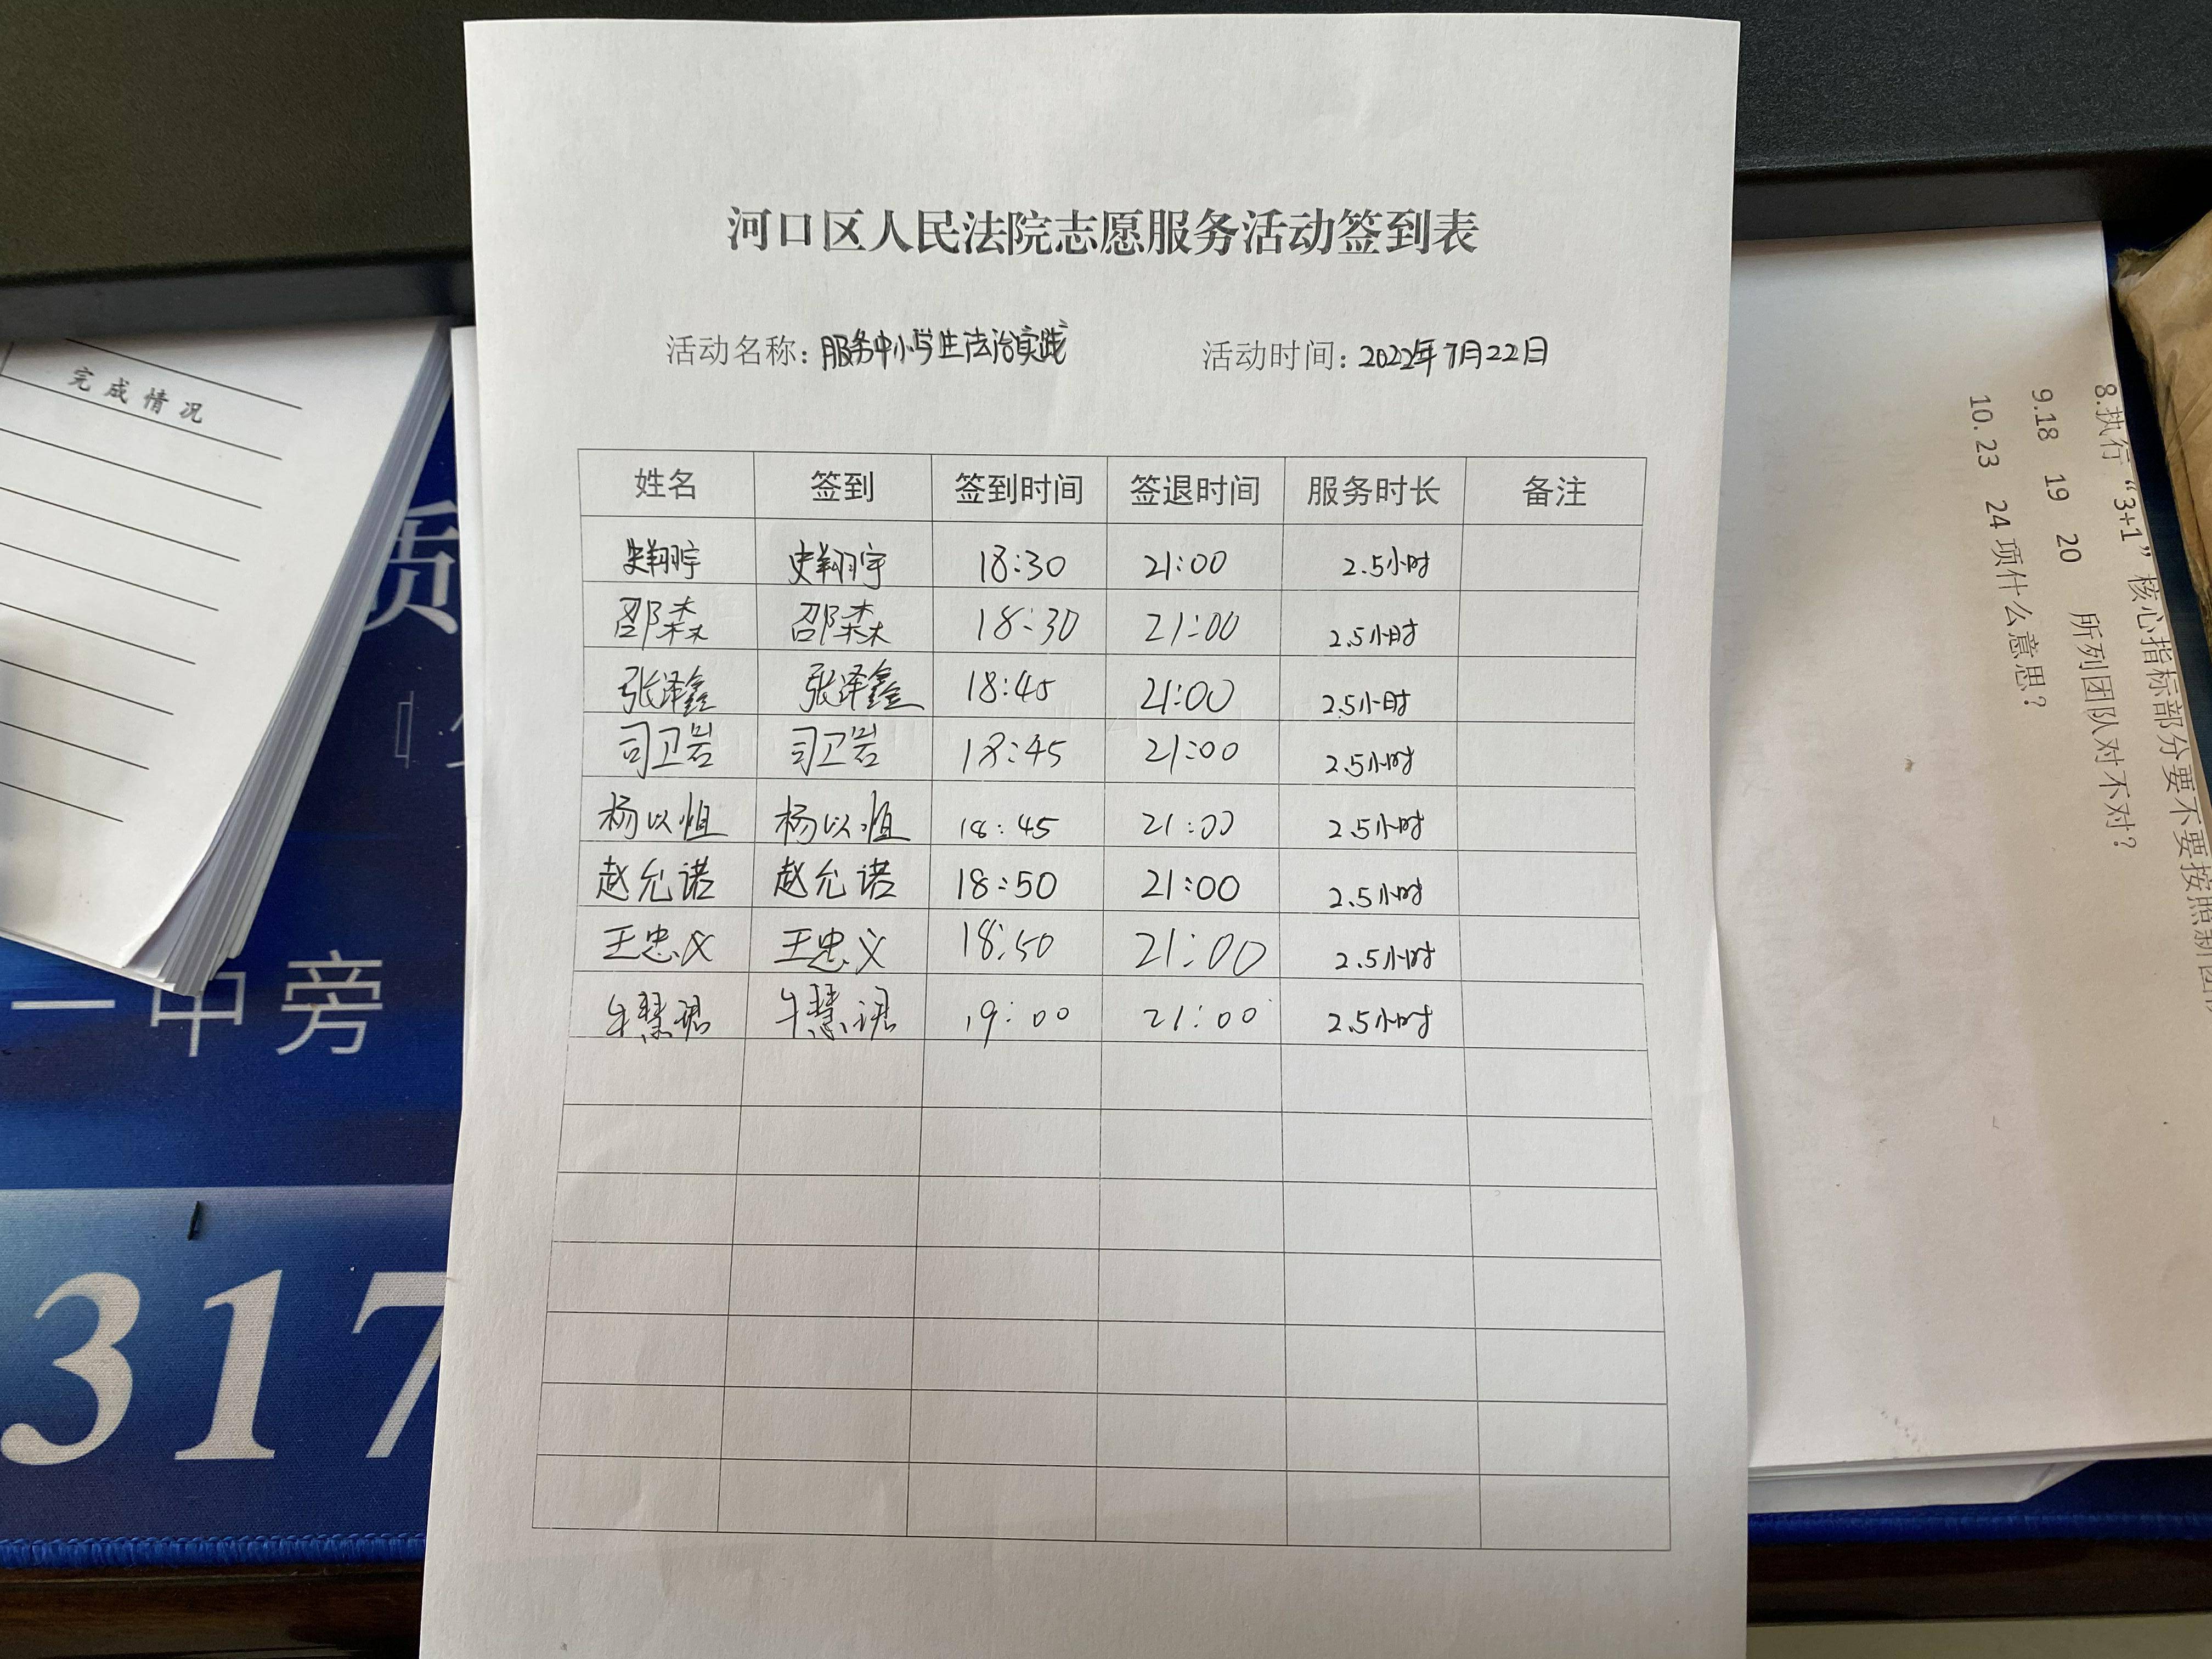 河口区人民法院志愿服务活动签到表
活动名称：服务中小学生法治实践 活动时间：2022年7月22日
姓名 签到 签到时间 签退时间 服务时长 备注
史翔宇 史翔宇 18:30 21:00 2.5小时
邵森 邵森 18:30 21:00 2.5小时
张泽鑫 张泽鑫 18:45 21:00 2.5小时
司卫岩 司卫岩 18:45 21:00 2.5小时
杨以恒 杨以恒 18:45 21:00 2.5小时
赵允诺 赵允诺 18:50 21:00 2.5小时
王忠义 王忠义 18:50 21:00 2.5小时
19:00 21:00 2.5小时
完成情况
质
一中旁
317
8.执行“3+1”核心指标部分要不要按照新团队
9.18 19 20 所列团队对不对？
10.23 24项什么意思？